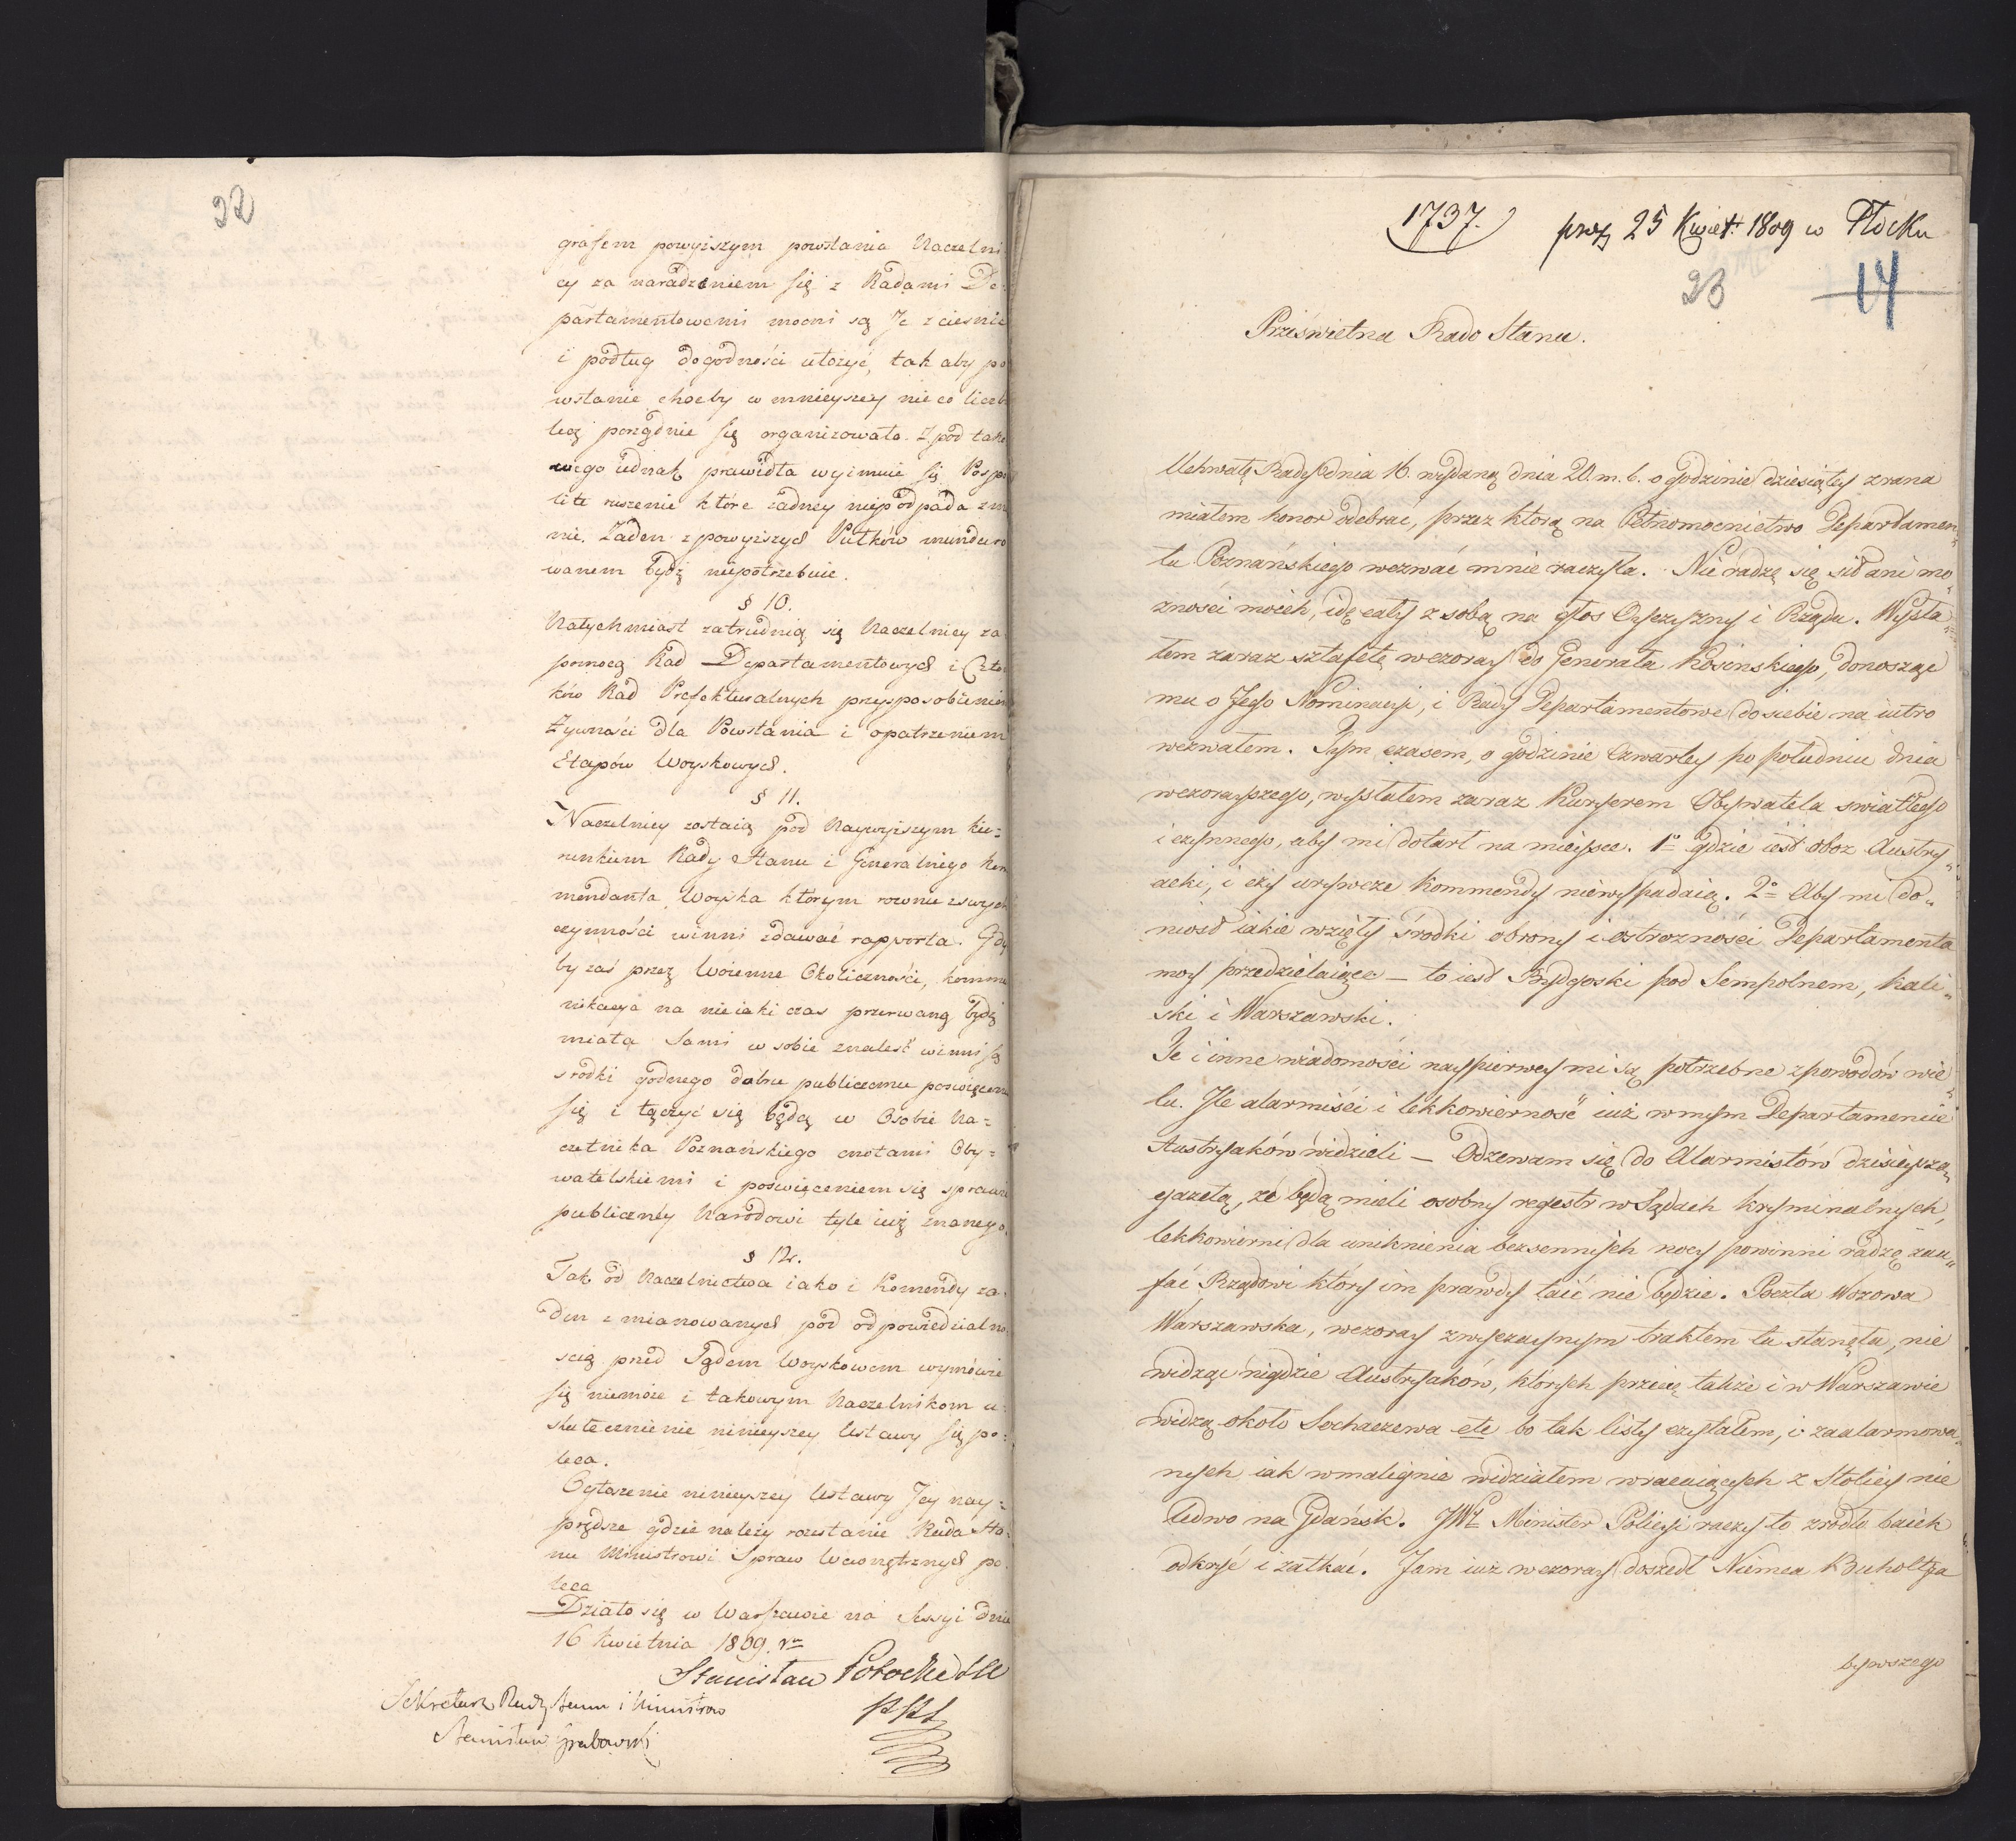 22
grafem powyiszym powstania Naczelni
cy za naradzeniem się z Radami De-
partamentowemi mocni są Je zciesnić
i podług dogodności ułożyć, tak aby po
wstanie choćby w mnieyszey nieco liczb
lecz porządnie się organizowało. Zpod tako
wego iednak prawidła wyimuie się Pospo
lite ruszenie które żadney niepodpada zm
nie. Żaden z powyiszych Pułków munduro
wanem bydź niepotrzebuie.
§ 10.
Natychmiast zatrudnią się Naczelnicy za
pomocą Rad Departamentowych i Człon
ków Rad Prefekturalnych przysposobieniem
Żywności dla Powstania i opatrzeniem
Etapów Woyskowych.
§ 11.
Naczelnicy zostaią pod Naywyiszym kie-
runkiem Rady Stanu i Generalnego Kom
mendanta Woyska którym rownie zswych
czynności winni zdawać rapporta. Gdy
by zaś przez Woienne Okoliczności, kommu
nikacya na nieiaki czas przerwaną bydź
miała Sami w sobie znaleść winni są
srodki godnego dobru publicznemu poswięcenia
się i łączyć się będą w Osobie Na-
czelnika Poznańskiego cnotami Oby-
watelskiemi i poswięceniem się sprawie
publiczney Narodowi tyle iuż znanego.
§ 12.
Tak od Naczelnictwa iako i Komendy ża-
den z mianowanych pod odpowiedzialno-
scią przed Sądem Woyskowem wymówić
się niemoże i takowym Naczelnikom u-
skutecznienie ninieyszey Ustawy się po-
leca.
Ogłoszenie ninieyszey Ustawy Jey nay-
prędsze gdzie należy rozesłanie Rada Sta-
nu Ministrowi Spraw Wewnętrznych po-
leca
Działo się w Warszawie na Sessyi dnia
16 Kwietnia 1809. ro
Stanisław Potocki
Sekretarz Rady Stanu i Ministrów
Stanisław Grabowski
1737. prez 25 Kwiet: 1809 w Płocku
23 14
Prześwietna Rado Stanu.
Uchwałę Rady dnia 16. wydaną dnia 20. m. b. o godzinie dziesiątey zrana
miałem honor odebrać, przez którą na Pełnomocnictwo Departamen„
tu Poznańskiego wezwać mnie raczyła. Nie radzę się sił ani mo„
zności moich, idę cały z sobą na głos Oyczyzny i Rządu. Wysła„
łem zaraz sztafetę wczoray do Generała Kosinskiego, donosząc
mu o Jego Nominacyi, i Rady Departamentowe do siebie na iutro
wezwałem. Tym czasem, o godzinie czwartey po południu dnia
wczorayszego, wysłałem zaraz Kuryerem Obywatela swiatłego
i czynnego, aby mi dotarł na mieysce. 1o gdzie iest oboz Austry„
acki, i czy urywcze Kommendy niewypadaią. 2o Aby mi do„
niosł iakie wzięły środki obrony i ostrozności Departamenta
moy przedzielaiące — to iest Bydgoski pod Sempolnem, Kali„
ski i Warszawski.
Te i inne wiadomości naypierwey mi są potrzebne zpowodów wie„
lu. Ile alarmiści i lekkowierność iuż w mym Departamencie
Austryaków widzieli — Odzewam się do Alarmistów dzisieyszą
gazetą, że będą mieli osobny regestr w Sądach kryminalnych,
lekkowierni dla uniknienia bezsennych nocy powinni radzę zau„
fać Rządowi który im prawdy taić nie będzie. Poczta Wozowa
Warszawska, wczoray zwyczaynym traktem tu stanęła, nie
widząc nigdzie Austryaków, których przecię także i w Warszawie
widzą około Sochaczewa etc bo tak listy czytałem, i zaalarmowa„
nych iak wmalignie widziałem wracaiących z Stolicy nie
ledwo na Gdańsk. JWy Minister Policyi raczy to zrodło baiek
odkryć i zatkać. Jam iuż wczoray doszedł Niemca Bucholtza
bywszego